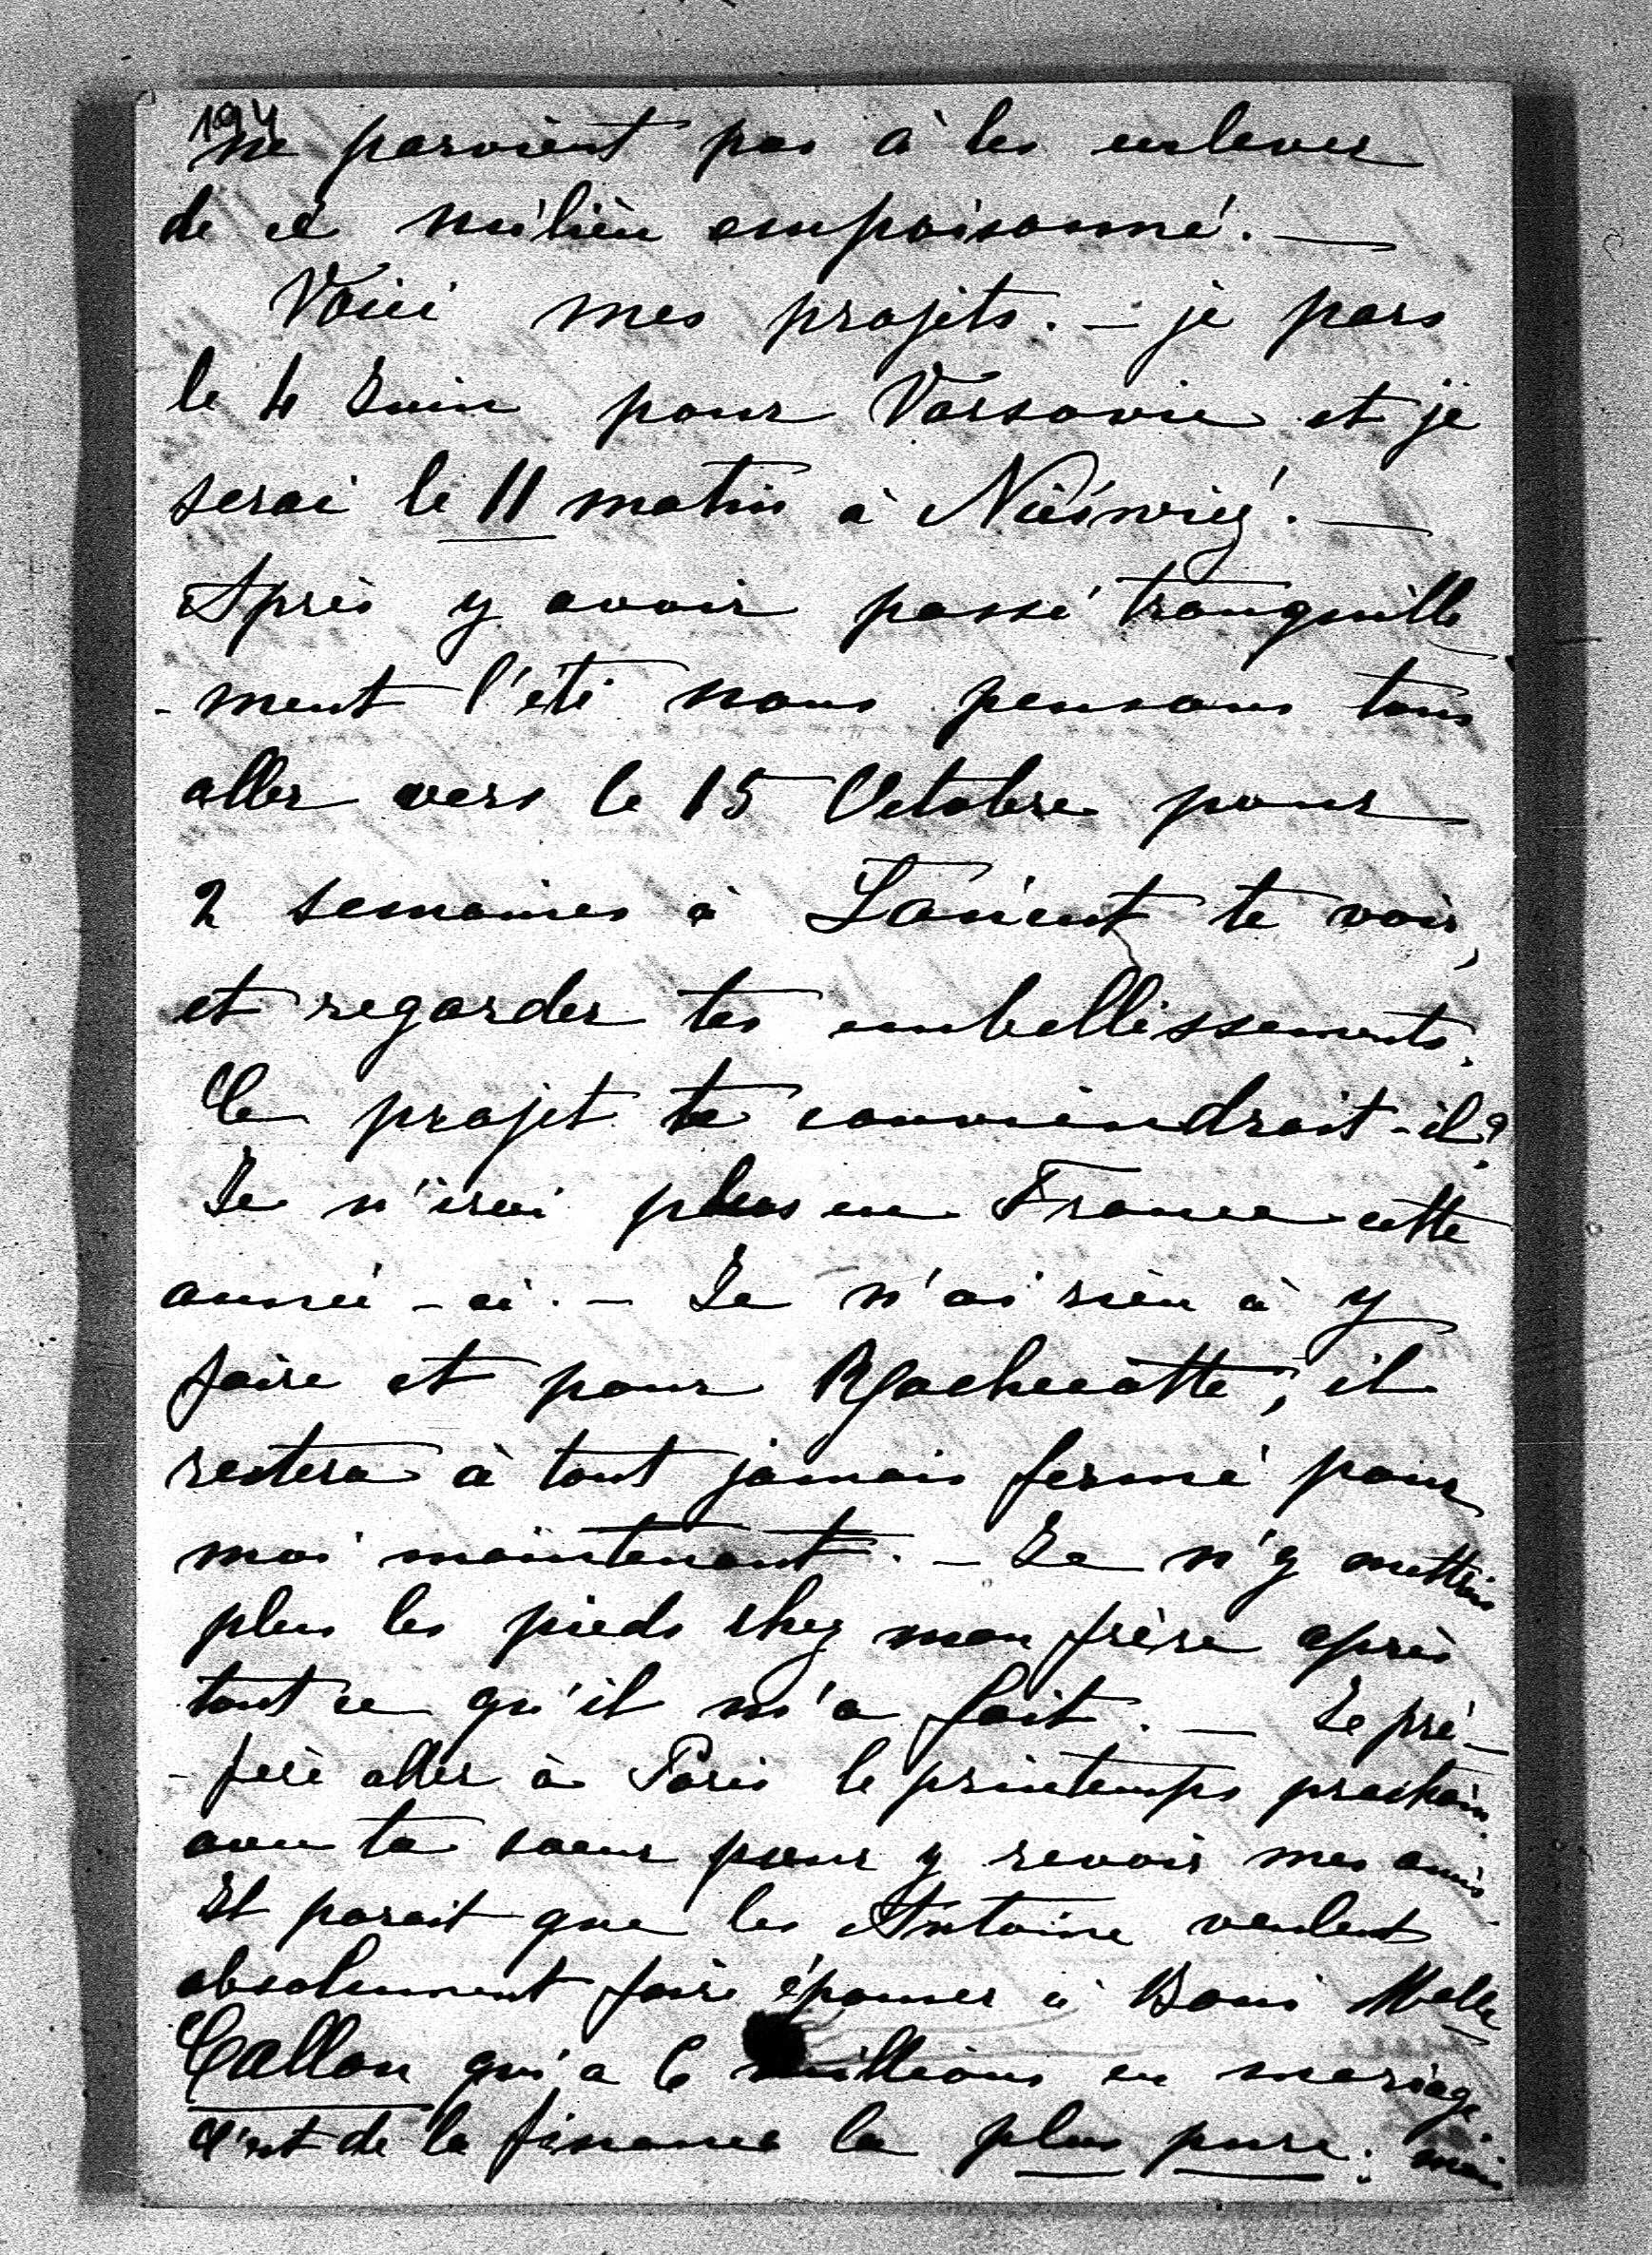 194
ne parvient pas à les enlever
de ce milieu empoisonné. —
Voici mes projets. — je pars
le 4 Juin pour Varsovie et je
serai le 11 matin à Nieśwież. —
Après y avoir passé tranquille
- ment l'été nous pensons tous
aller vers le 15 Octobre pour
2 semaines à Łańcut te voir,
et regarder tes embellissements.
Ce projet te conviendrait-il?
Je n'irai plus en France cette
année-ci. — Je n'ai rien à y
faire et pour Rochecotte, il
restera à tout jamais fermé pour
moi maintenant. — Je n'y mettrai
plus les pieds chez mon frère après
tout ce qu'il m'a fait. — Je pré-
- fère aller à Paris le printemps prochain
avec ta soeur pour y revoir mes amis.
Il parait que les Antoine veulent
absolument faire épouser à Boni Melle
Callon qui a 6 millions en mariage
c'est de la finance la plus pure: mais